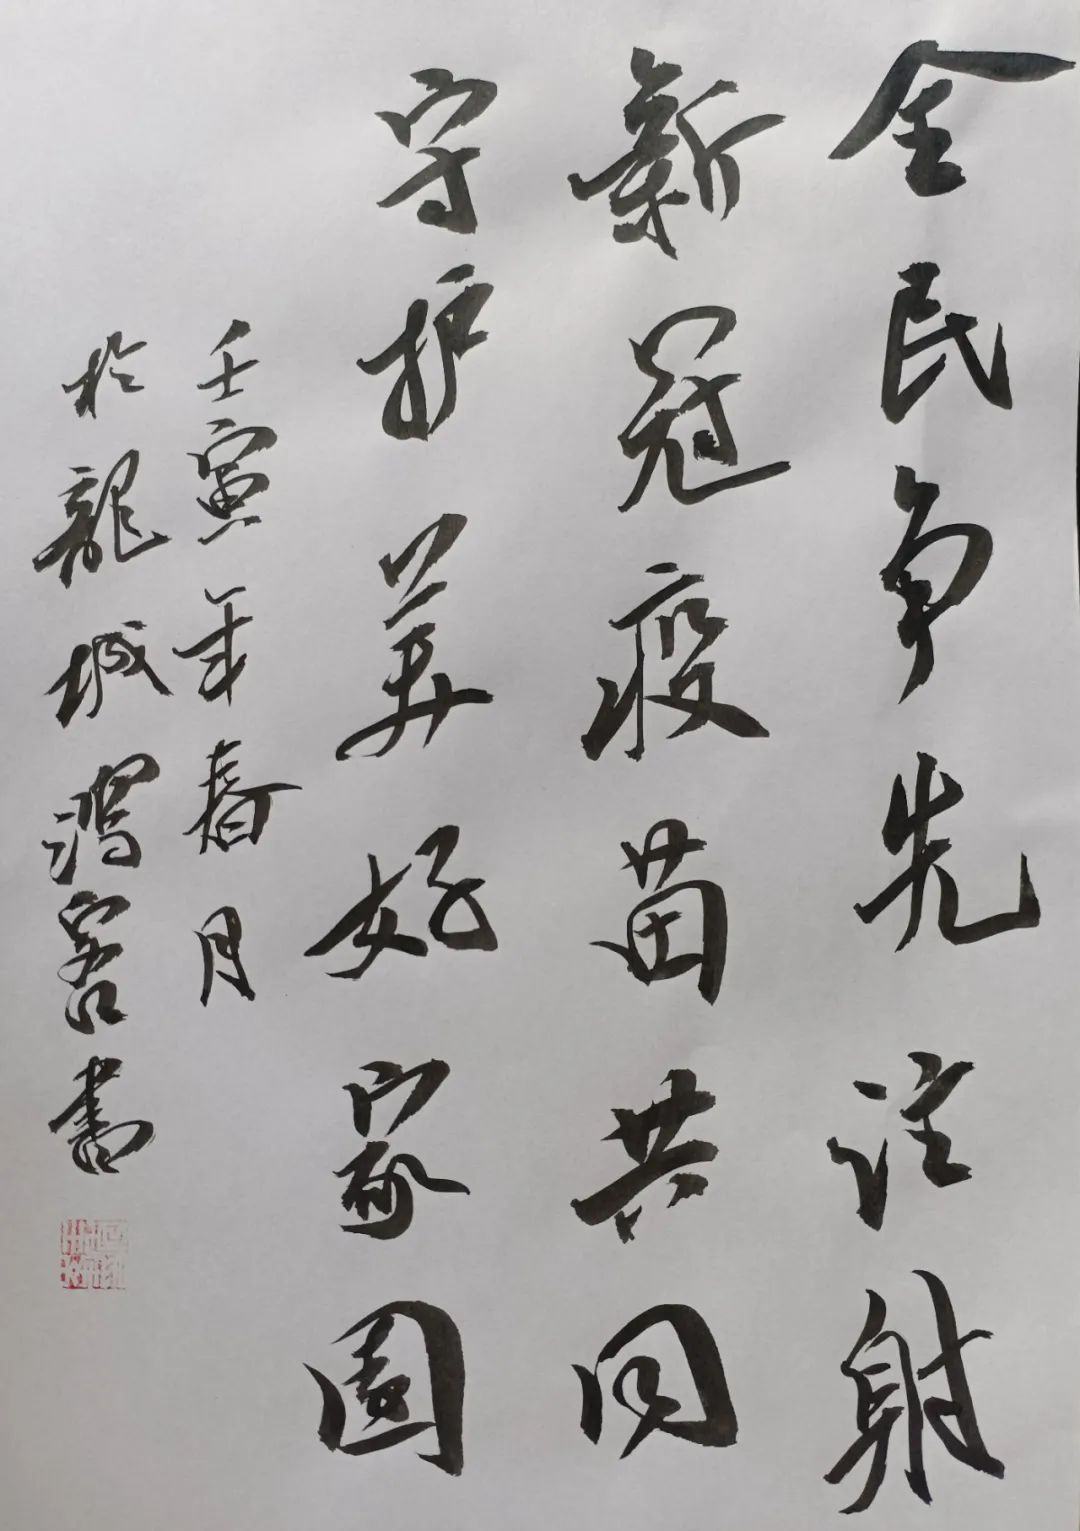 全民争先注射
新冠疫苗共同
守护美好家園
壬寅年春月
於龍城鴻客書